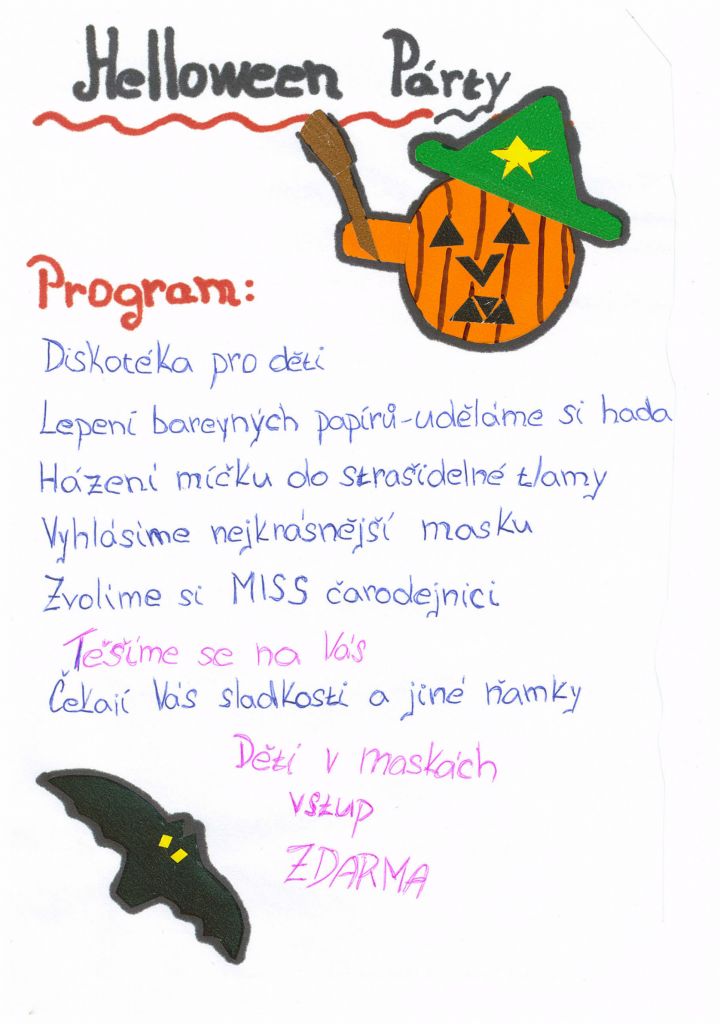 Helloween Párty
Program:
Diskotéka pro děti
Lepení bareyných papírů-uděláme si hada
Házení míčku do strašidelné tlamy
Vyhlásíme nejkrásnější masku
Zvolíme si MISS čarodejnici
Těšíme se na Vás
Čekají Vás sladkosti a jiné ňamky
Děti v maskách
vstup
ZDARMA